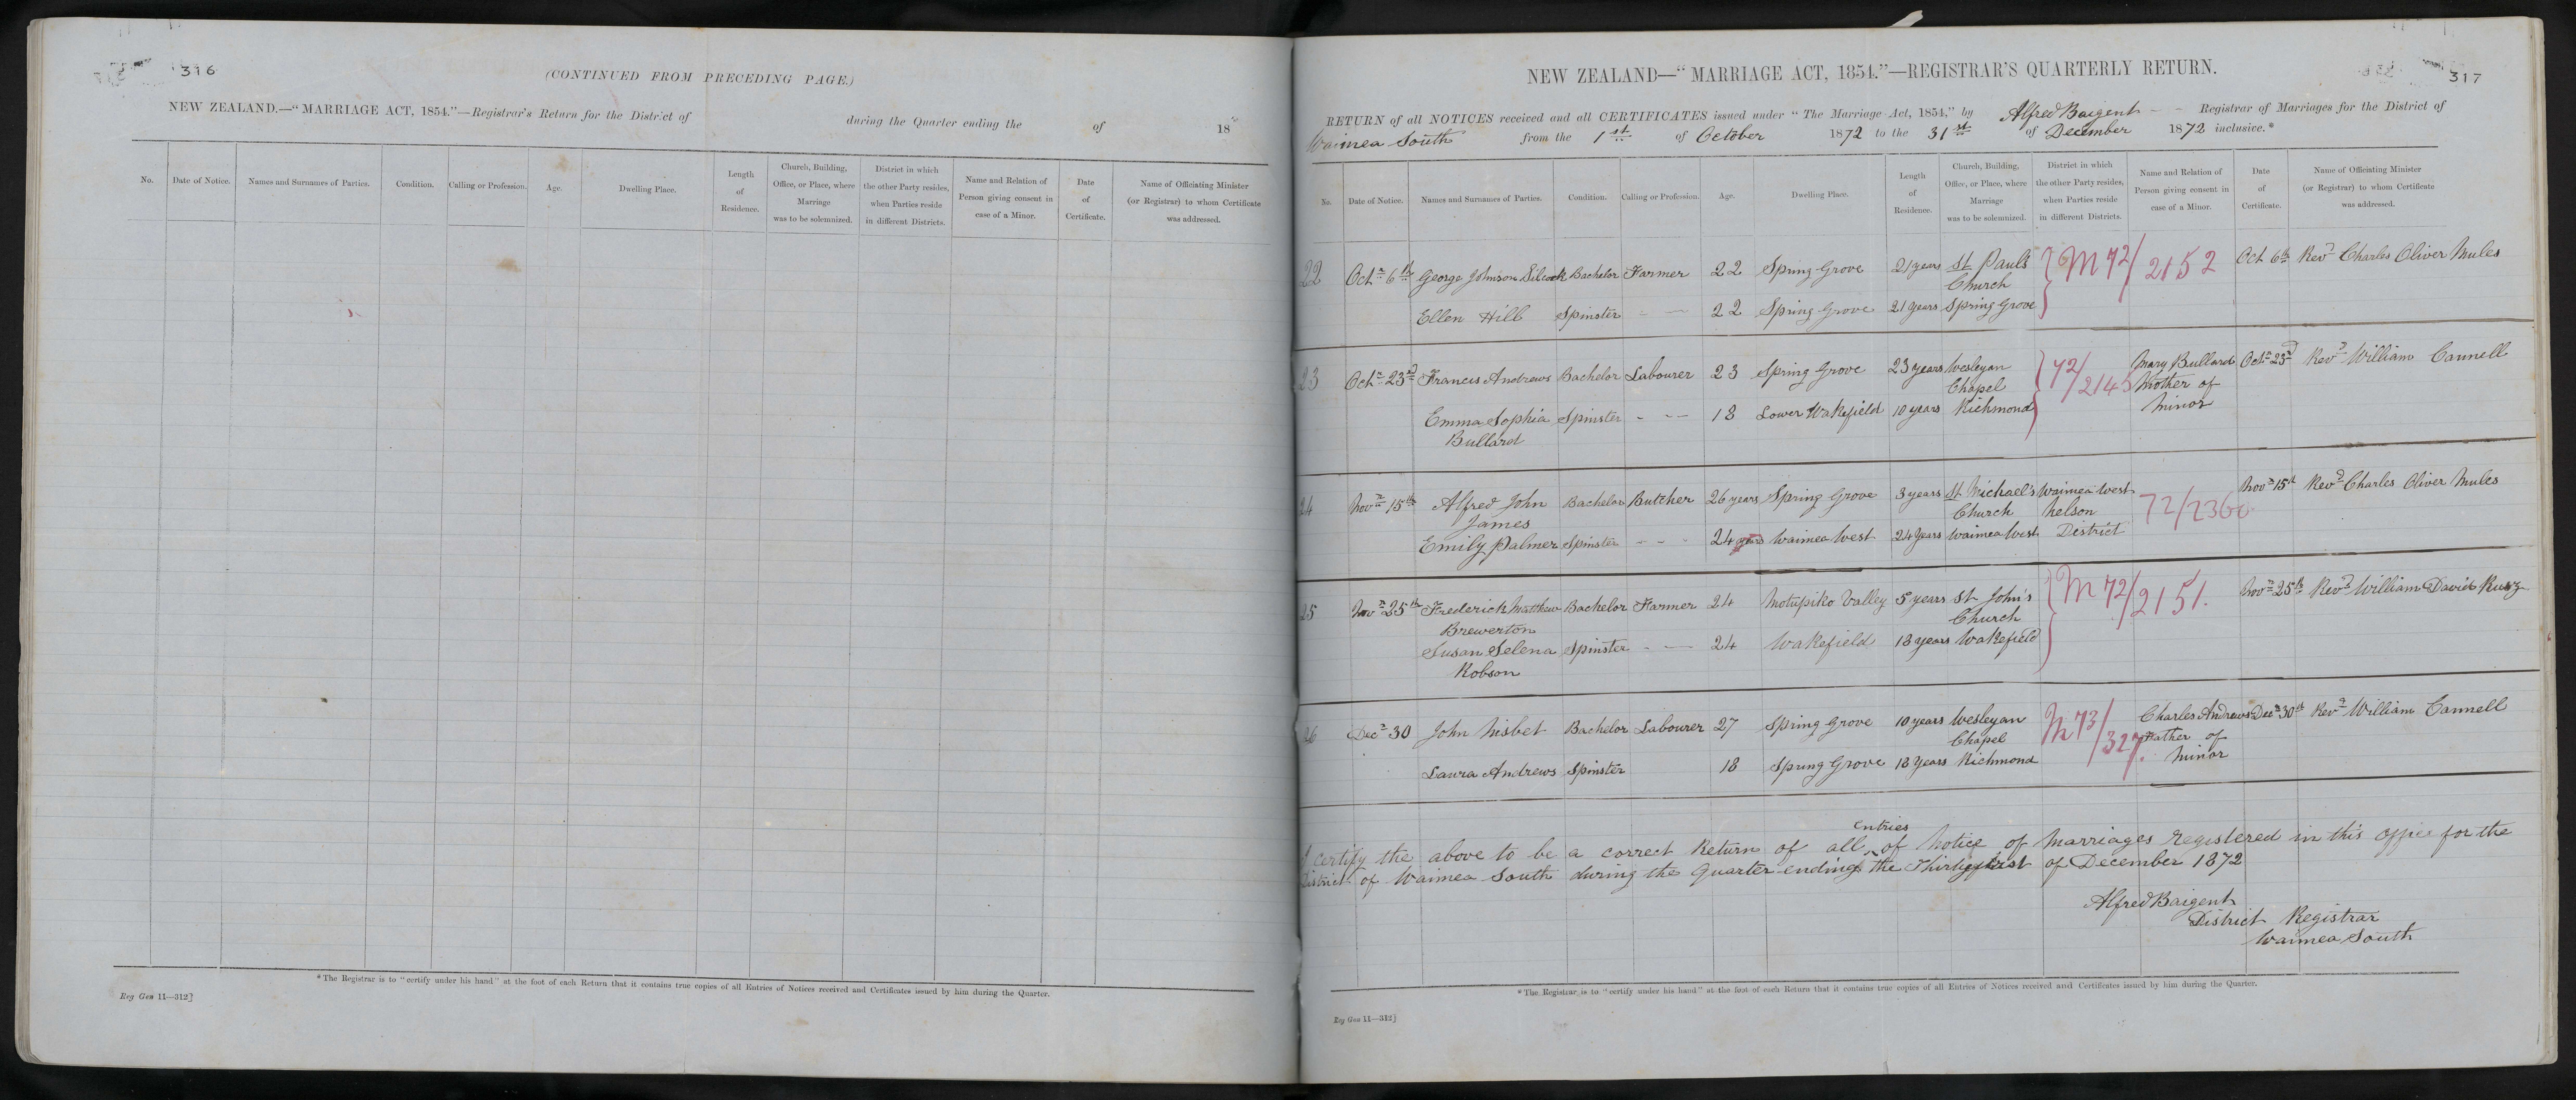 316
(CONTINUED FROM PRECEDING PAGE.)
NEW ZEALAND.—"MARRIAGE ACT, 1854."—Registrar's Return for the District of during the Quarter ending the of 18
No. Date of Notice. Names and Surnames of Parties. Condition. Calling or Profession. Age. Dwelling Place. Length of Residence. Church, Building, Office, or Place, where Marriage was to be solemnized. District in which the other Party resides, when Parties reside in different Districts. Name and Relation of Person giving consent in case of a Minor. Date of Certificate. Name of Officiating Minister (or Registrar) to whom Certificate was addressed.
* The Registrar is to "certify under his hand" at the foot of each Return that it contains true copies of all Entries of Notices received and Certificates issued by him during the Quarter.
Reg Gen 11—312]
317
NEW ZEALAND—"MARRIAGE ACT, 1854."—REGISTRAR'S QUARTERLY RETURN.
RETURN of all NOTICES received and all CERTIFICATES issued under "The Marriage Act, 1854," by Alfred Baigent Registrar of Marriages for the District of
Waimea South from the 1st of October 1872 to the 31st of December 1872 inclusive.*
No. Date of Notice. Names and Surnames of Parties. Condition. Calling or Profession. Age. Dwelling Place. Length of Residence. Church, Building, Office, or Place, where Marriage was to be solemnized. District in which the other Party resides, when Parties reside in different Districts. Name and Relation of Person giving consent in case of a Minor. Date of Certificate. Name of Officiating Minister (or Registrar) to whom Certificate was addressed.
22 Octr 6th George Johnson Silcock Bachelor Farmer 22 Spring Grove 21 years St Paul's Church M 72/2152 Oct 6th Revd Charles Oliver Mules
Ellen Hill Spinster - - 22 Spring Grove 21 years Spring Grove
23 Octr 23rd Francis Andrews Bachelor Labourer 23 Spring Grove 23 years Wesleyan Chapel 72/2145 Mary Bullard Mother of Minor Octr 23d Revd William Cannell
Emma Sophia Bullard Spinster - - - 18 Lower Wakefield 10 years Richmond
24 Novr 15th Alfred John James Bachelor Butcher 26 years Spring Grove 3 years St Michael's Church Waimea West Nelson District 72/2360 Novr 15th Revd Charles Oliver Mules
Emily Palmer Spinster - - - 24 years Waimea West 24 years Waimea West
25 Novr 25th Frederick Matthew Brewerton Bachelor Farmer 24 Motupiko Valley 5 years St John's Church M 72/2151. Novr 25th Revd William David
Susan Selena Robson Spinster - - 24 Wakefield 18 years Wakefield
26 Decr 30 John Nisbet Bachelor Labourer 27 Spring Grove 10 years Wesleyan Chapel M 73/327. Charles Andrews Father of Minor Decr 30th Revd William Cannell
Laura Andrews Spinster 18 Spring Grove 18 years Richmond
entries
I certify the above to be a correct Return of all of Notice of Marriages registered in this office for the
District of Waimea South during the Quarter ending the Thirtyfirst of December 1872
Alfred Baigent
District Registrar
Waimea South
* The Registrar is to "certify under his hand" at the foot of each Return that it contains true copies of all Entries of Notices received and Certificates issued by him during the Quarter.
Reg Gen 11—312]